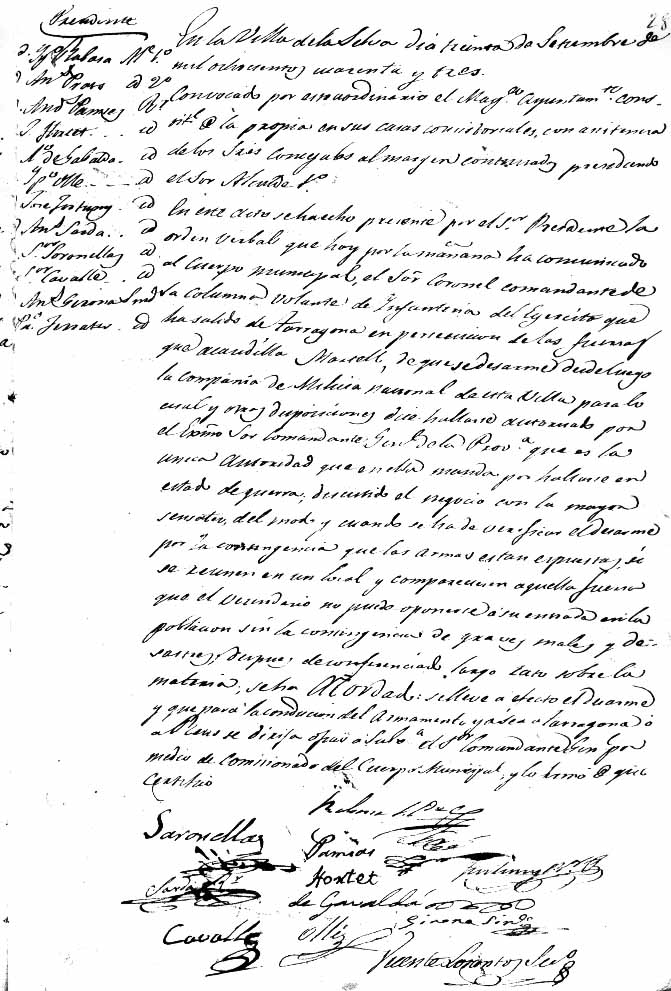 28
Presidente
En la Villa de la Selva dia treinta de Setiembre de
mil ochocientos cuarenta y tres.
Convocado por extraordinario el Mag.co Ayuntam.to cons-
tit.l @ la propia en sus casas consistoriales, con asistencia
de los Sres Concejales al margen continuados, presidiendo
el Sor Alcalde 1.o
Rabasa Al.e 1.o
An.o id 2.o
And.s Pamies
Hortet id
de Gabaldá id
Olle id
Jose Fortuny id
An.o Sardá id
Soronellas id
Cavalle id
An.o Girona Sind
Ferrater id
En este acto se ha echo presente por el S.r Presidente la
orden verbal que hoy por la mañana ha comunicado
al Cuerpo municipal, el Sor Coronel comandante de
la columna volante de Infanteria del Egercito que
ha salido de Tarragona en persecucion de las fuerzas
que acaudilla Martell, de que se desarme desde luego
la compañia de Milicia nacional de esta Villa para lo
cual y otras disposiciones dice hallarse autorizado por
el Exmo Sor Comandante Gen.l de la Prov.a que es la
unica autoridad que en ella manda por hallarse en
estado de guerra; discutido el negocio con la mayor
sensatez, del modo y cuando se ha de verificar el desarme
por la contingencia que las armas estan espuestas, si
se reunen en un local y compareciesen aquella fuerza
que el vecindario no puede oponerse á su entrada en la
poblacion sin la contingencia de graves males y de-
sastres; despues de conferenciado largo rato sobre la
materia, se ha Acordado: se lleve a efecto el desarme
y que para la conducion del Armamento, ya sea a Tarragona ó
a Reus se dirija oficio a Sub.a el S.or Comandante Gen.l por
medio de Comisionado del Cuerpo Municipal, y lo firmo @ que
Certifico
Rabasa
Soronellas
Pamias
Sardá
Hortet
de Gavaldá
Girona Sind.o
Cavalle
Ollé
Vicente Sec.o